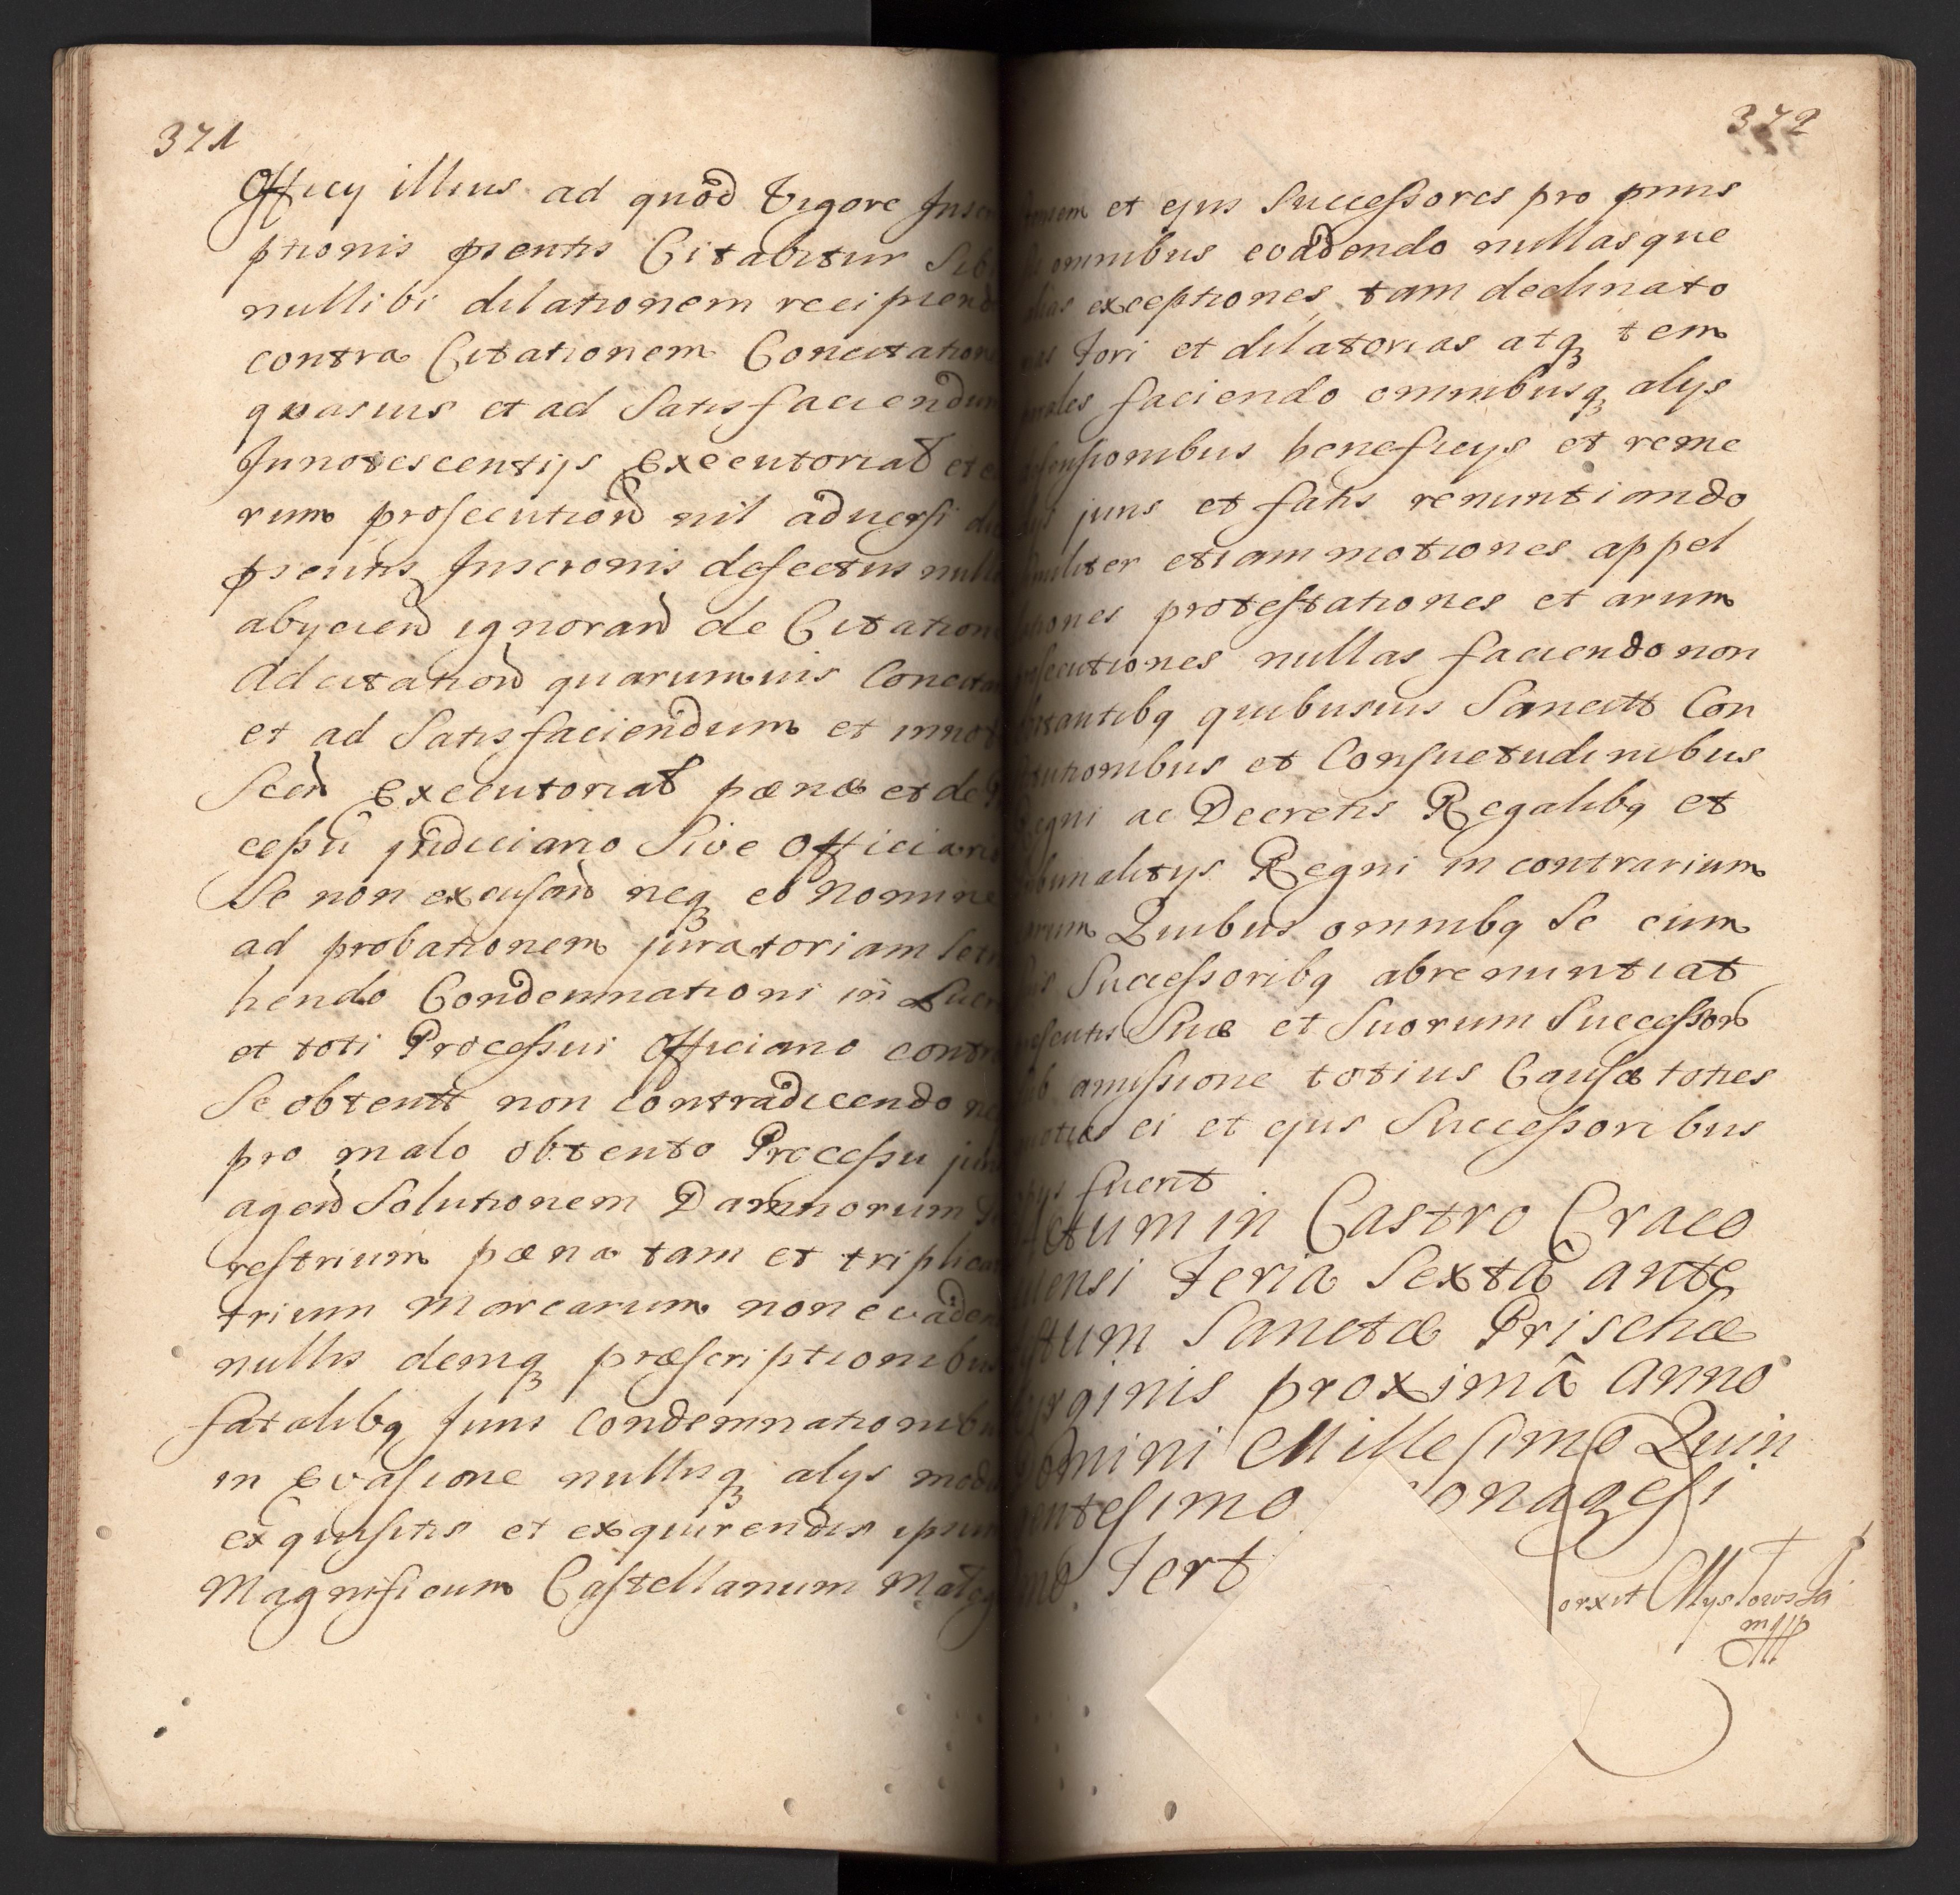 371
Officy illius ad quod Vigore Inscri
ptionis pnentis Citabitur Sibi
nullibi dilationem recipiend
contra Citationem Concitation
quasuis et ad Satisfaciendum
Innotescentijs Executorial et
rum prosecution nil aduersi
pnentis Inscronis defectus
abycien ignoran de Citation
Adcitation quarumuis
et ad Satisfaciendum et
Scen Executorial pænæ et de
cessu judiciario Sive Officiario
Se non excusan neq eo nomine
ad probationem juratoriam
hendo Condemnationi in
et toti Processui Officiario contra
Se obtentt non contradicendo
pro malo obtento Processu
agen Solutionem Damnorum
restrium pæna tam et
trium Marcarum non
nullis demq præscriptionibus
fatalibq Juris condemnationibus
in Evasione nullisq alys modis
exquisitis et exquirendis ipsum
Magnificum Castellanum
372
et ejus Successores pro pmis
omnibus evadendo nullasque
exceptiones tam declinato
fori et dilatorias atq tem
faciendo omnibusq alys
beneficys et reme
juris et fatis renuntiando
etiam motiones appel
protestationes et arum
nullas faciendo non
quibusuis Sancitt Con
et Consuetudinibus
Regni ac Decretis Regalibq et
Regni in contrarium
Quibus omnibq Se cum
Successoribq abrenuntiat
Suæ et Suorum Successor
amissione totius Causæ toties
ei et ejus Successoribus
fuerit
Actum in Castro Craco
viensi Feria Sexta ante
festum Sanctæ Prischæ
Virginis proximâ Anno
Domini Millesimo Quin
gentesimo Nonagesi
mo Tert
Mystowski
mpp